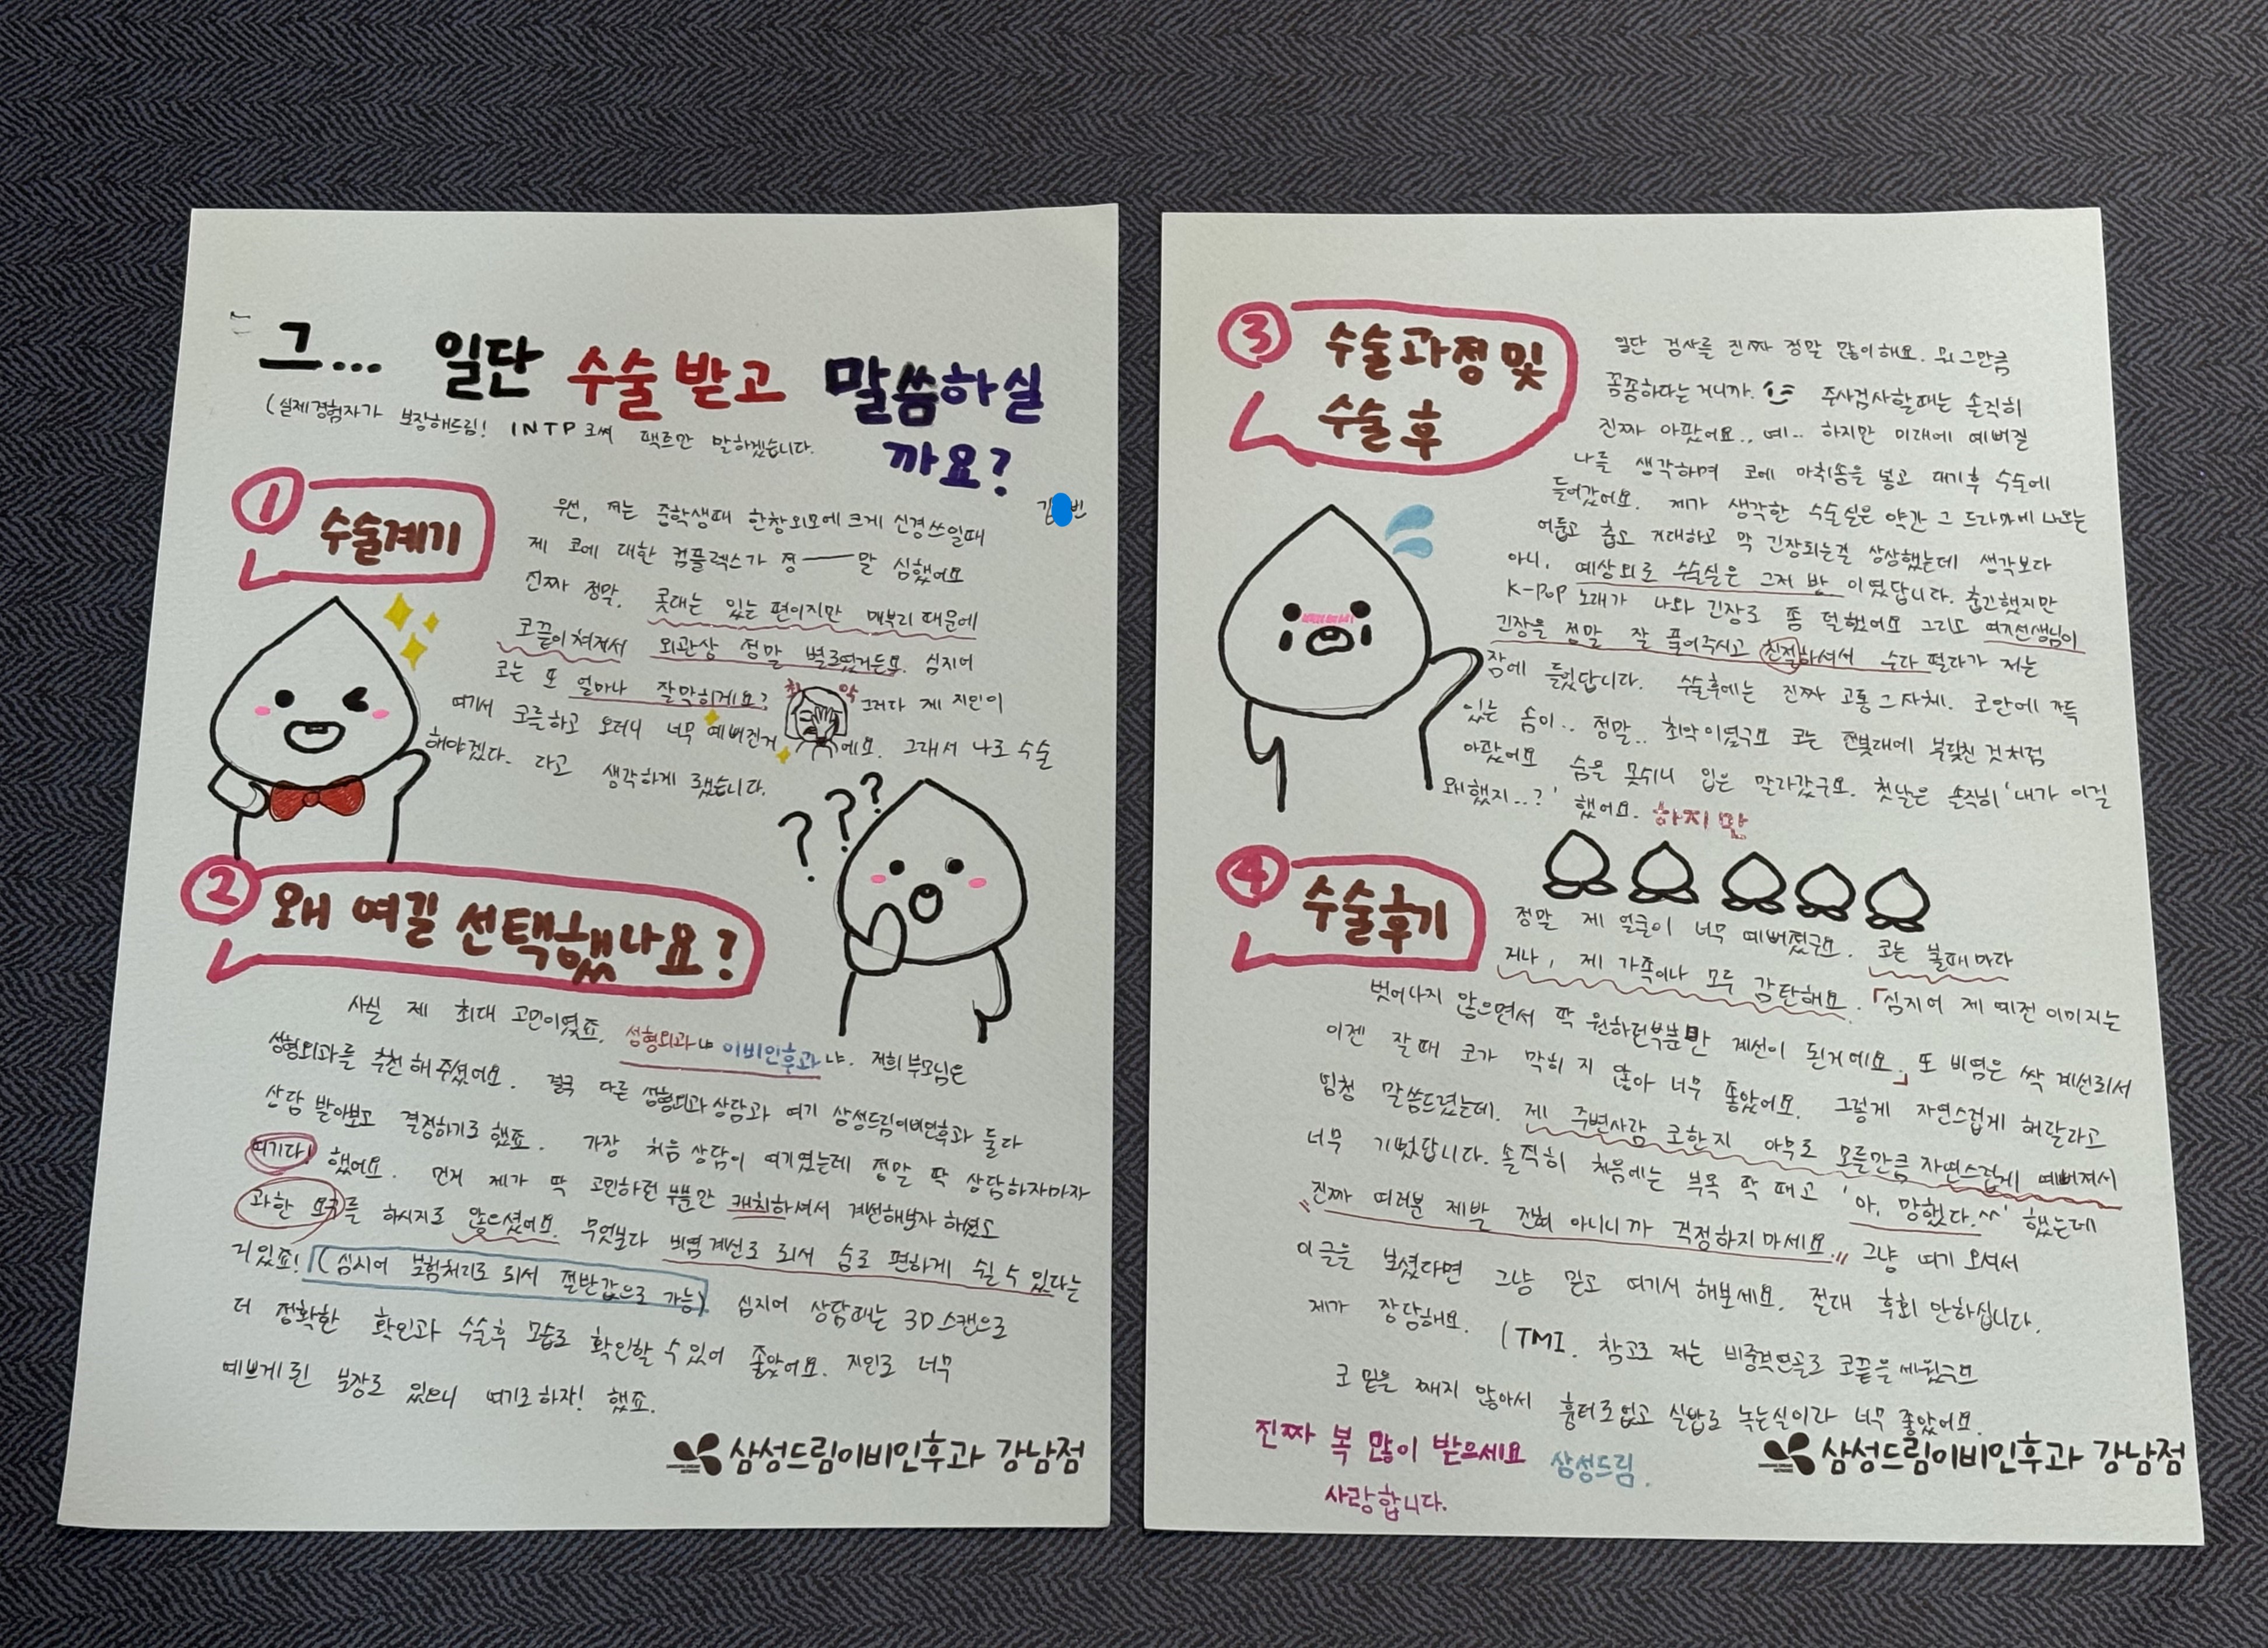 그... 일단 수술 받고 말씀하실
까요?
(실제경험자가 보장해드림! INTP로써 팩트만 말하겠습니다.
김 빈
① 수술계기
우선, 저는 중학생때 한창 외모에 크게 신경쓰일때
제 코에 대한 컴플렉스가 정──말 심했어요
진짜 정말. 콧대는 있는 편이지만 매부리 때문에
코끝이 쳐져서 외관상 정말 별로였거든요. 심지어
코는 또 얼마나 잘막히게요? 최악 그러다 제 지인이
여기서 코를하고 오더니 너무 예뻐진거에요. 그래서 나도 수술
해야겠다. 라고 생각하게 됐습니다.
???
② 왜 여길 선택했나요?
사실 제 최대 고민이였죠. 성형외과냐 이비인후과냐. 저희 부모님은
성형외과를 추천 해 주셨어요. 결국 다른 성형외과 상담과 여기 삼성드림이비인후과 둘다
상담 받아보고 결정하기로 했죠. 가장 처음 상담이 여기였는데 정말 딱 상담하자마자
여기다! 했어요. 먼저 제가 딱 고민하던 부분만 캐치하셔서 개선해보자 하셨고
과한 요구를 하시지도 않으셨어요. 무엇보다 비염 개선도 되서 숨도 편하게 쉴 수 있다는
거 있죠! (심지어 보험처리도 되서 절반값으로 가능) 심지어 상담때는 3D 스캔으로
더 정확한 확인과 수술후 모습도 확인할 수 있어 좋았어요. 지인도 너무
예쁘게 된 보장도 있으니 여기로 하자! 했죠.
삼성드림이비인후과 강남점
③ 수술과정 및
수술 후
일단 검사를 진짜 정말 많이해요. 뭐 그만큼
꼼꼼하다는 거니까. 주사검사할때는 솔직히
진짜 아팠어요., 예.. 하지만 미래에 예뻐질
나를 생각하며 코에 마취솜을 넣고 대기후 수술에
들어갔어요. 제가 생각한 수술실은 약간 그 드라마에 나오는
어둡고 춥고 거대하고 막 긴장되는걸 상상했는데 생각보다
아니, 예상외로 수술실은 그저 방 이였답니다. 춥긴했지만
K-POP 노래가 나와 긴장도 좀 덜했어요 그리고 여자선생님이
긴장을 정말 잘 풀어주시고 친절하셔서 수다 떨다가 저는
잠에 들었답니다. 수술후에는 진짜 고통 그 자체. 코안에 가득
있는 솜이.. 정말.. 최악이였구요 코는 전봇대에 부딪친 것처럼
아팠어요 숨을 못쉬니 입은 말라갔구요. 첫날은 솔직히 '내가 이걸
왜했지..?' 했어요. 하지만
④ 수술후기
정말 제 얼굴이 너무 예뻐졌구요. 코는 볼때마다
저나, 제 가족이나 모두 감탄해요. 「심지어 제 예전 이미지는
벗어나지 않으면서 딱 원하던부분만 개선이 된거에요」 또 비염은 싹 개선되서
이젠 잘때 코가 막히지 않아 너무 좋았어요. 그렇게 자연스럽게 해달라고
엄청 말씀드렸는데. 제 주변사람 코한지 아무도 모를만큼 자연스럽게 예뻐져서
너무 기뻤답니다. 솔직히 처음에는 부목 딱 떼고 '아, 망했다.^^' 했는데
"진짜 여러분 제발 전혀 아니니까 걱정하지마세요." 그냥 여기 오셔서
이 글을 보셨다면 그냥 믿고 여기서 해보세요. 절대 후회 안하십니다.
제가 장담해요. (TMI. 참고로 저는 비중격연골로 코끝을 세웠구요
코 밑을 째지 않아서 흉터도없고 실밥도 녹는실이라 너무 좋았어요.
진짜 복 많이 받으세요 삼성드림.
사랑합니다.
삼성드림이비인후과 강남점